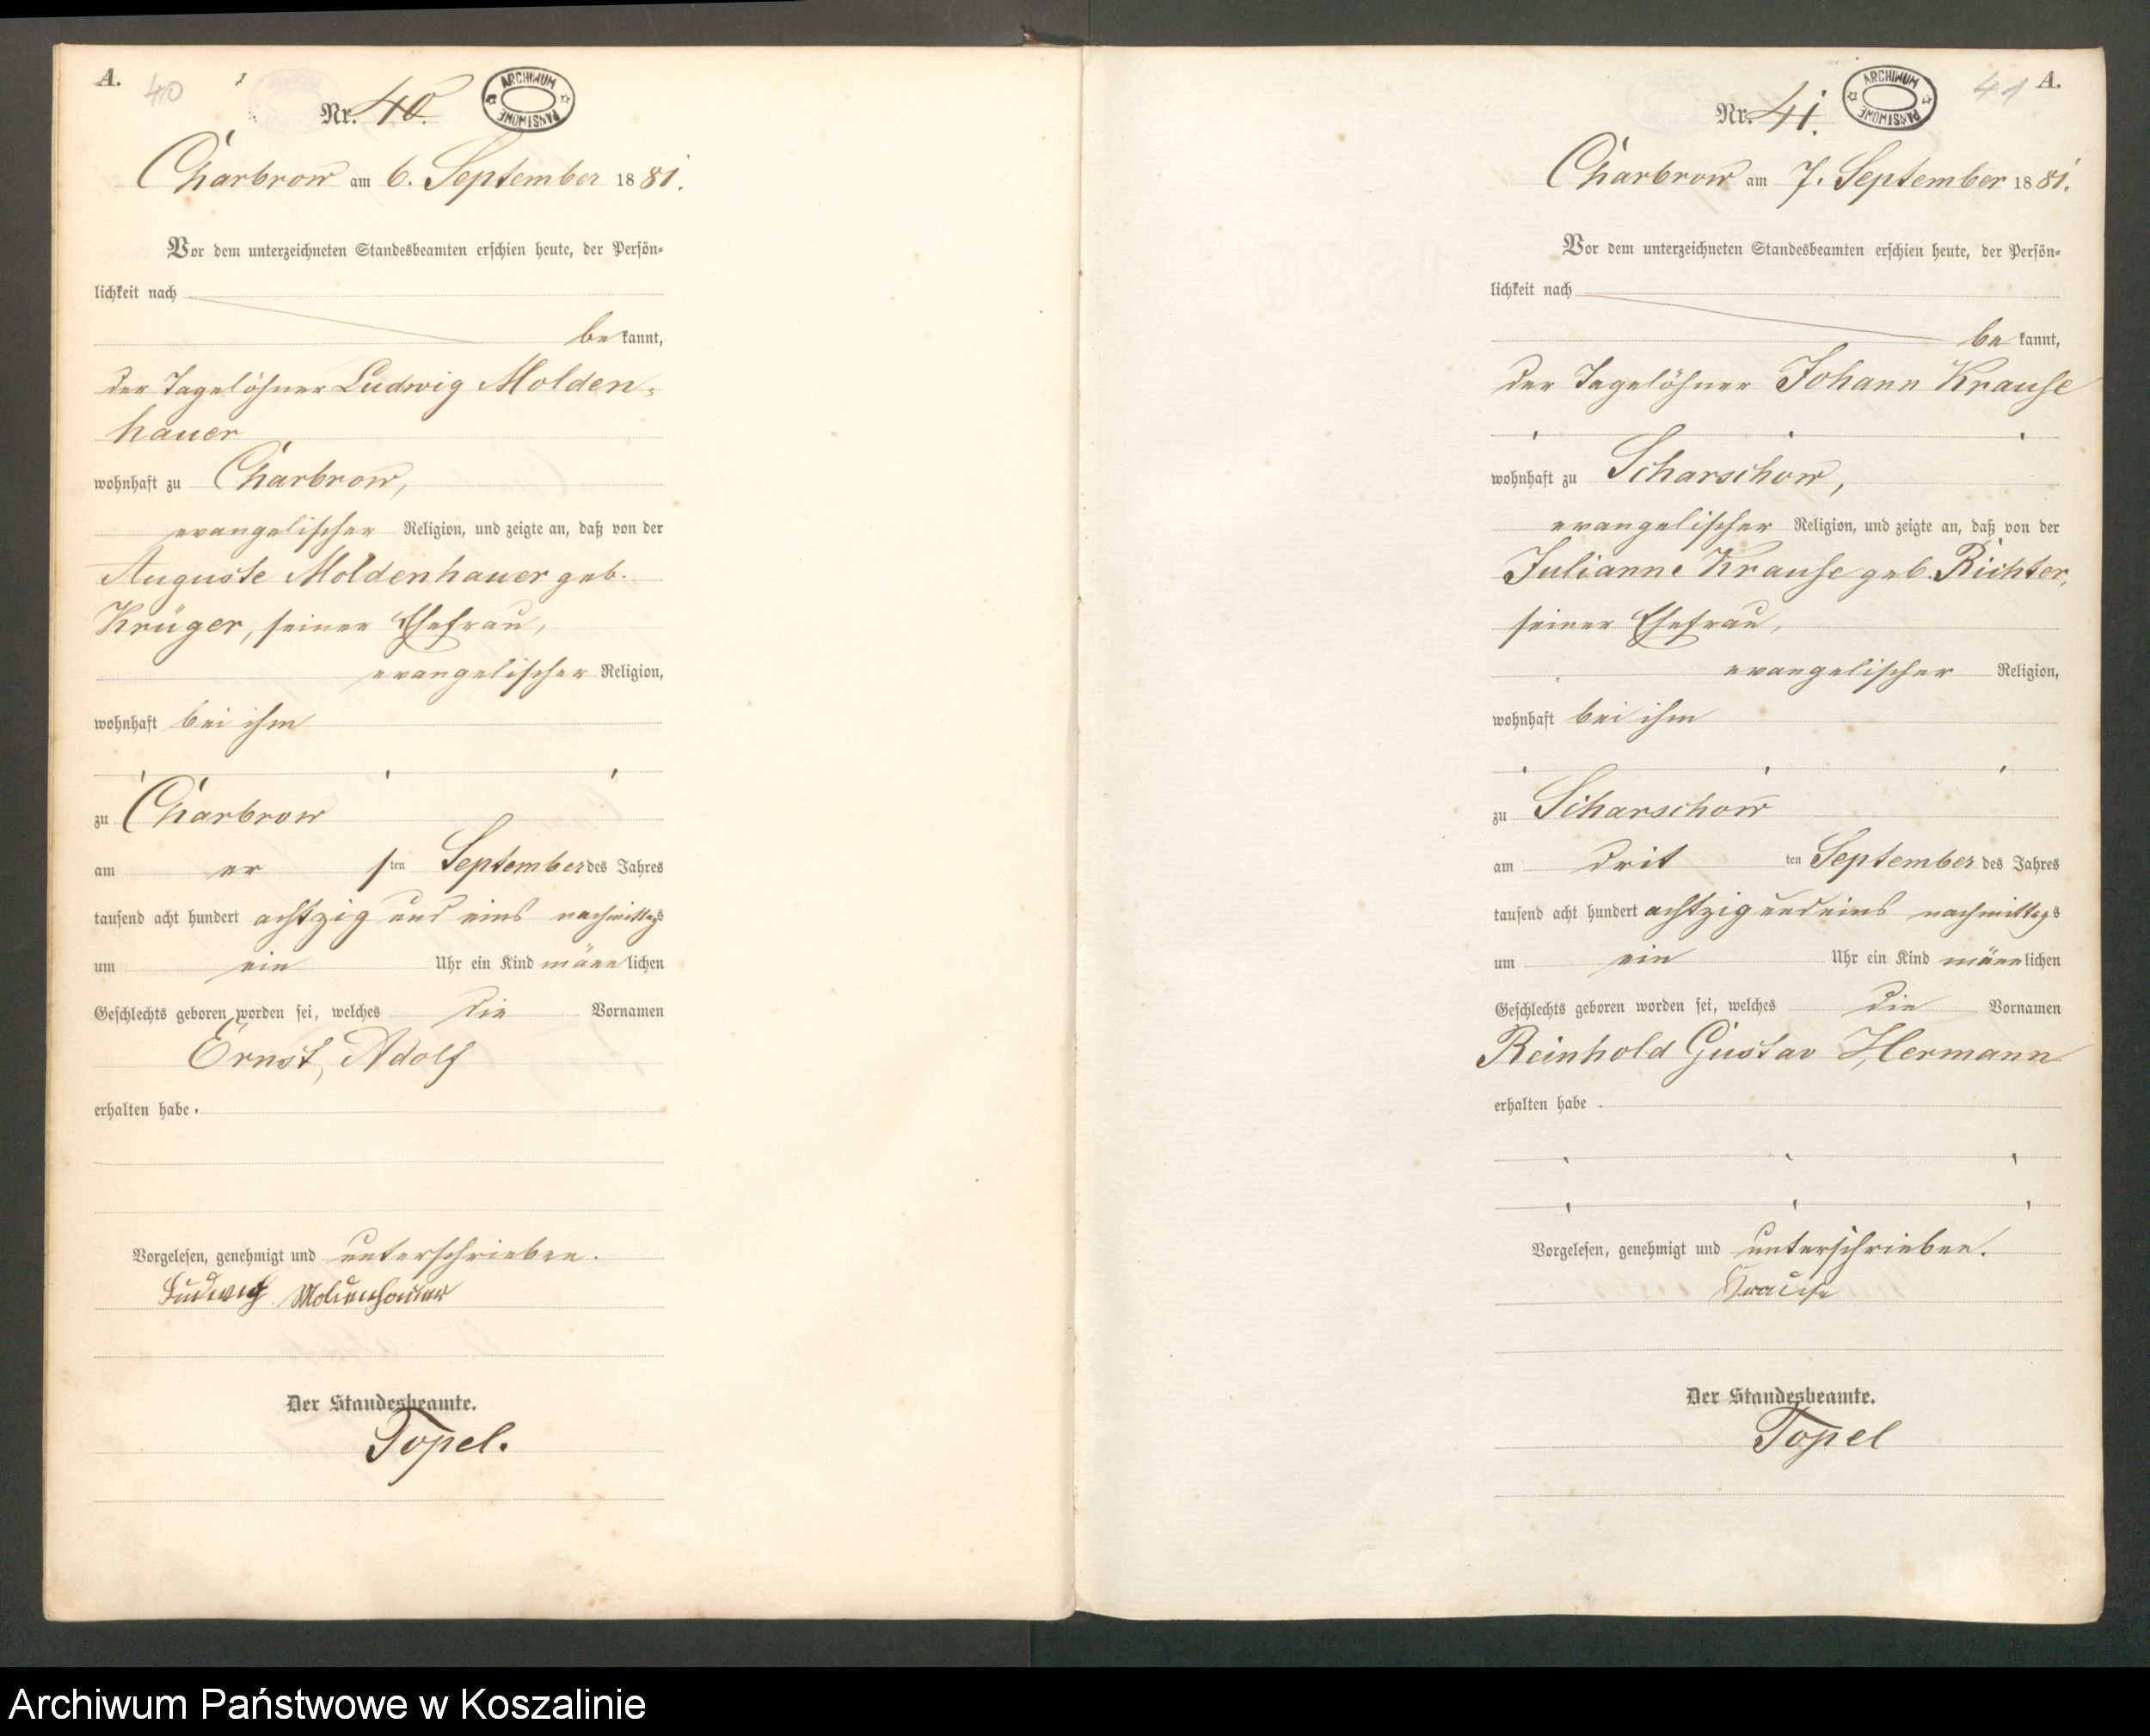 A.
40
Nr. 40.
ARCHIWUM PAŃSTWOWE
Charbrow am 6. September 1881.
Vor dem unterzeichneten Standesbeamten erschien heute, der Persön-
lichkeit nach
bekannt,
der Tagelöhner Ludwig Molden-
hauer
wohnhaft zu Charbrow,
evangelischer Religion, und zeigte an, daß von der
Auguste Moldenhauer geb.
Krüger, seiner Ehefrau,
evangelischer Religion,
wohnhaft bei ihm
zu Charbrow
am er sten September des Jahres
tausend acht hundert achtzig und eins nachmittags
um ein Uhr ein Kind männlichen
Geschlechts geboren worden sei, welches die Vornamen
Ernst, Adolf
erhalten habe.
Vorgelesen, genehmigt und unterschrieben.
Ludwig Moldenhauer
Der Standesbeamte.
Topel.
41 A.
Nr. 41.
ARCHIWUM PAŃSTWOWE
Charbrow am 7. September 1881.
Vor dem unterzeichneten Standesbeamten erschien heute, der Persön-
lichkeit nach
bekannt,
der Tagelöhner Johann Krause
wohnhaft zu Scharschow,
evangelischer Religion, und zeigte an, daß von der
Julianne Krause geb. Richter,
seiner Ehefrau,
evangelischer Religion,
wohnhaft bei ihm
zu Scharschow
am drit ten September des Jahres
tausend acht hundert achtzig und eins nachmittags
um ein Uhr ein Kind männlichen
Geschlechts geboren worden sei, welches die Vornamen
Reinhold Gustav Hermann
erhalten habe.
Vorgelesen, genehmigt und unterschrieben.
Krause
Der Standesbeamte.
Topel
Archiwum Państwowe w Koszalinie